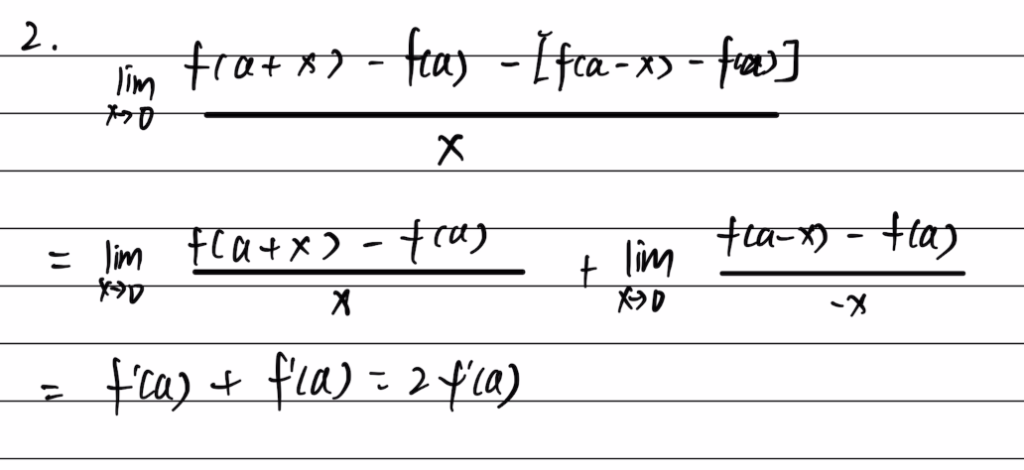 2.
lim x→0 (f(a+x) - f(a) - [f(a-x) - f(a)]) / x
= lim x→0 (f(a+x) - f(a)) / x + lim x→0 (f(a-x) - f(a)) / -x
= f'(a) + f'(a) = 2f'(a)